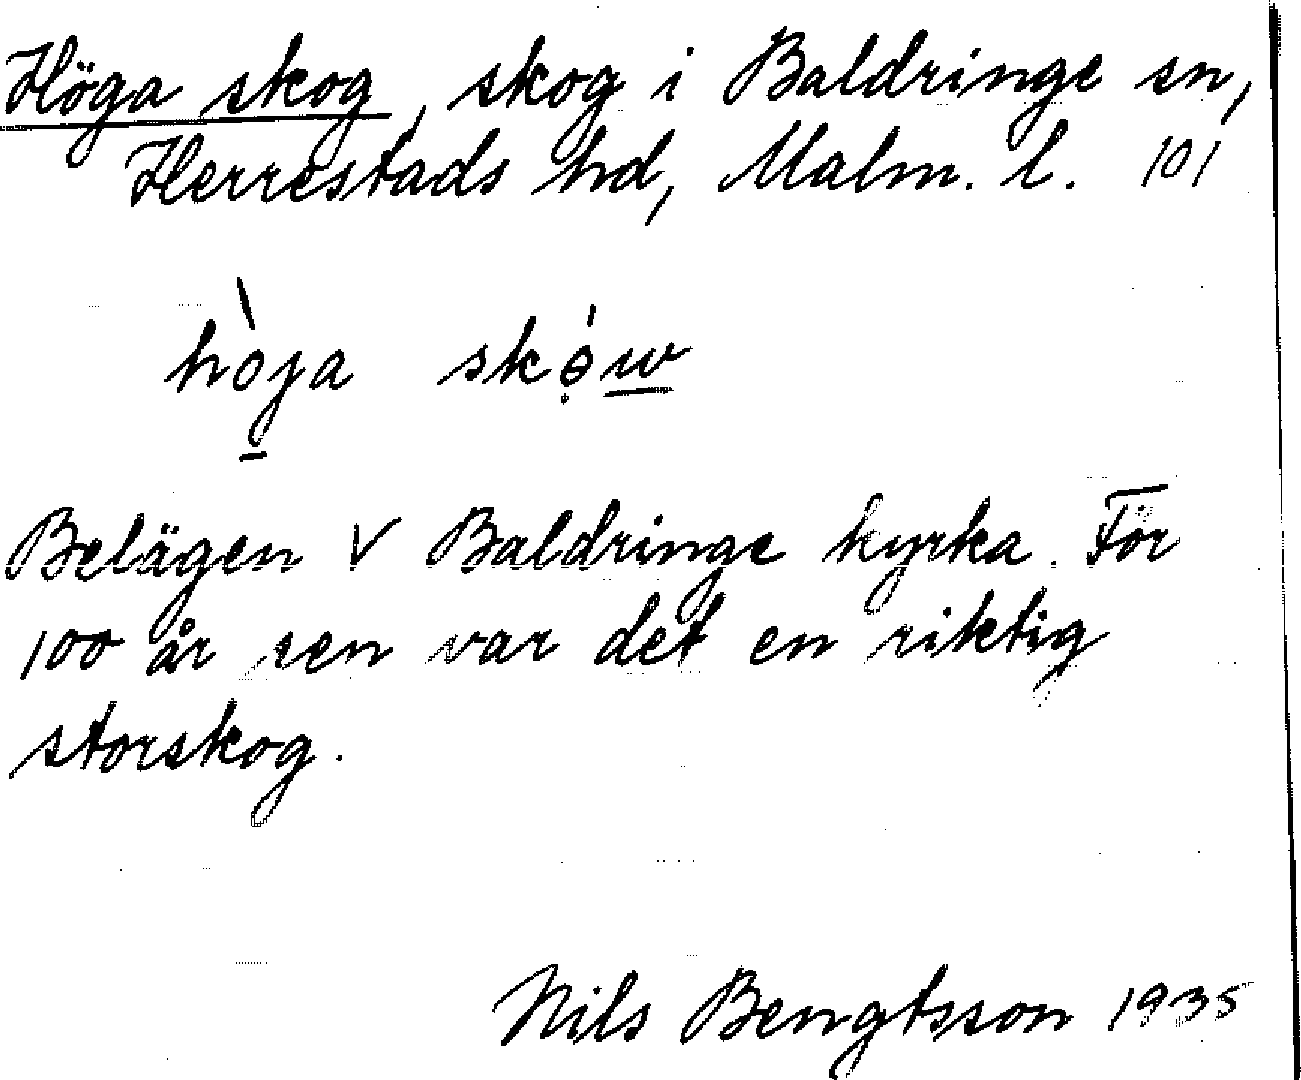 Höga skog, skog i Baldringe sn,
Herrestads hd, Malm. l. 101
hòja skó̤w
Belägen V Baldringe kyrka. För
100 år sen var det en riktig
storskog.
Nils Bengtsson 1935